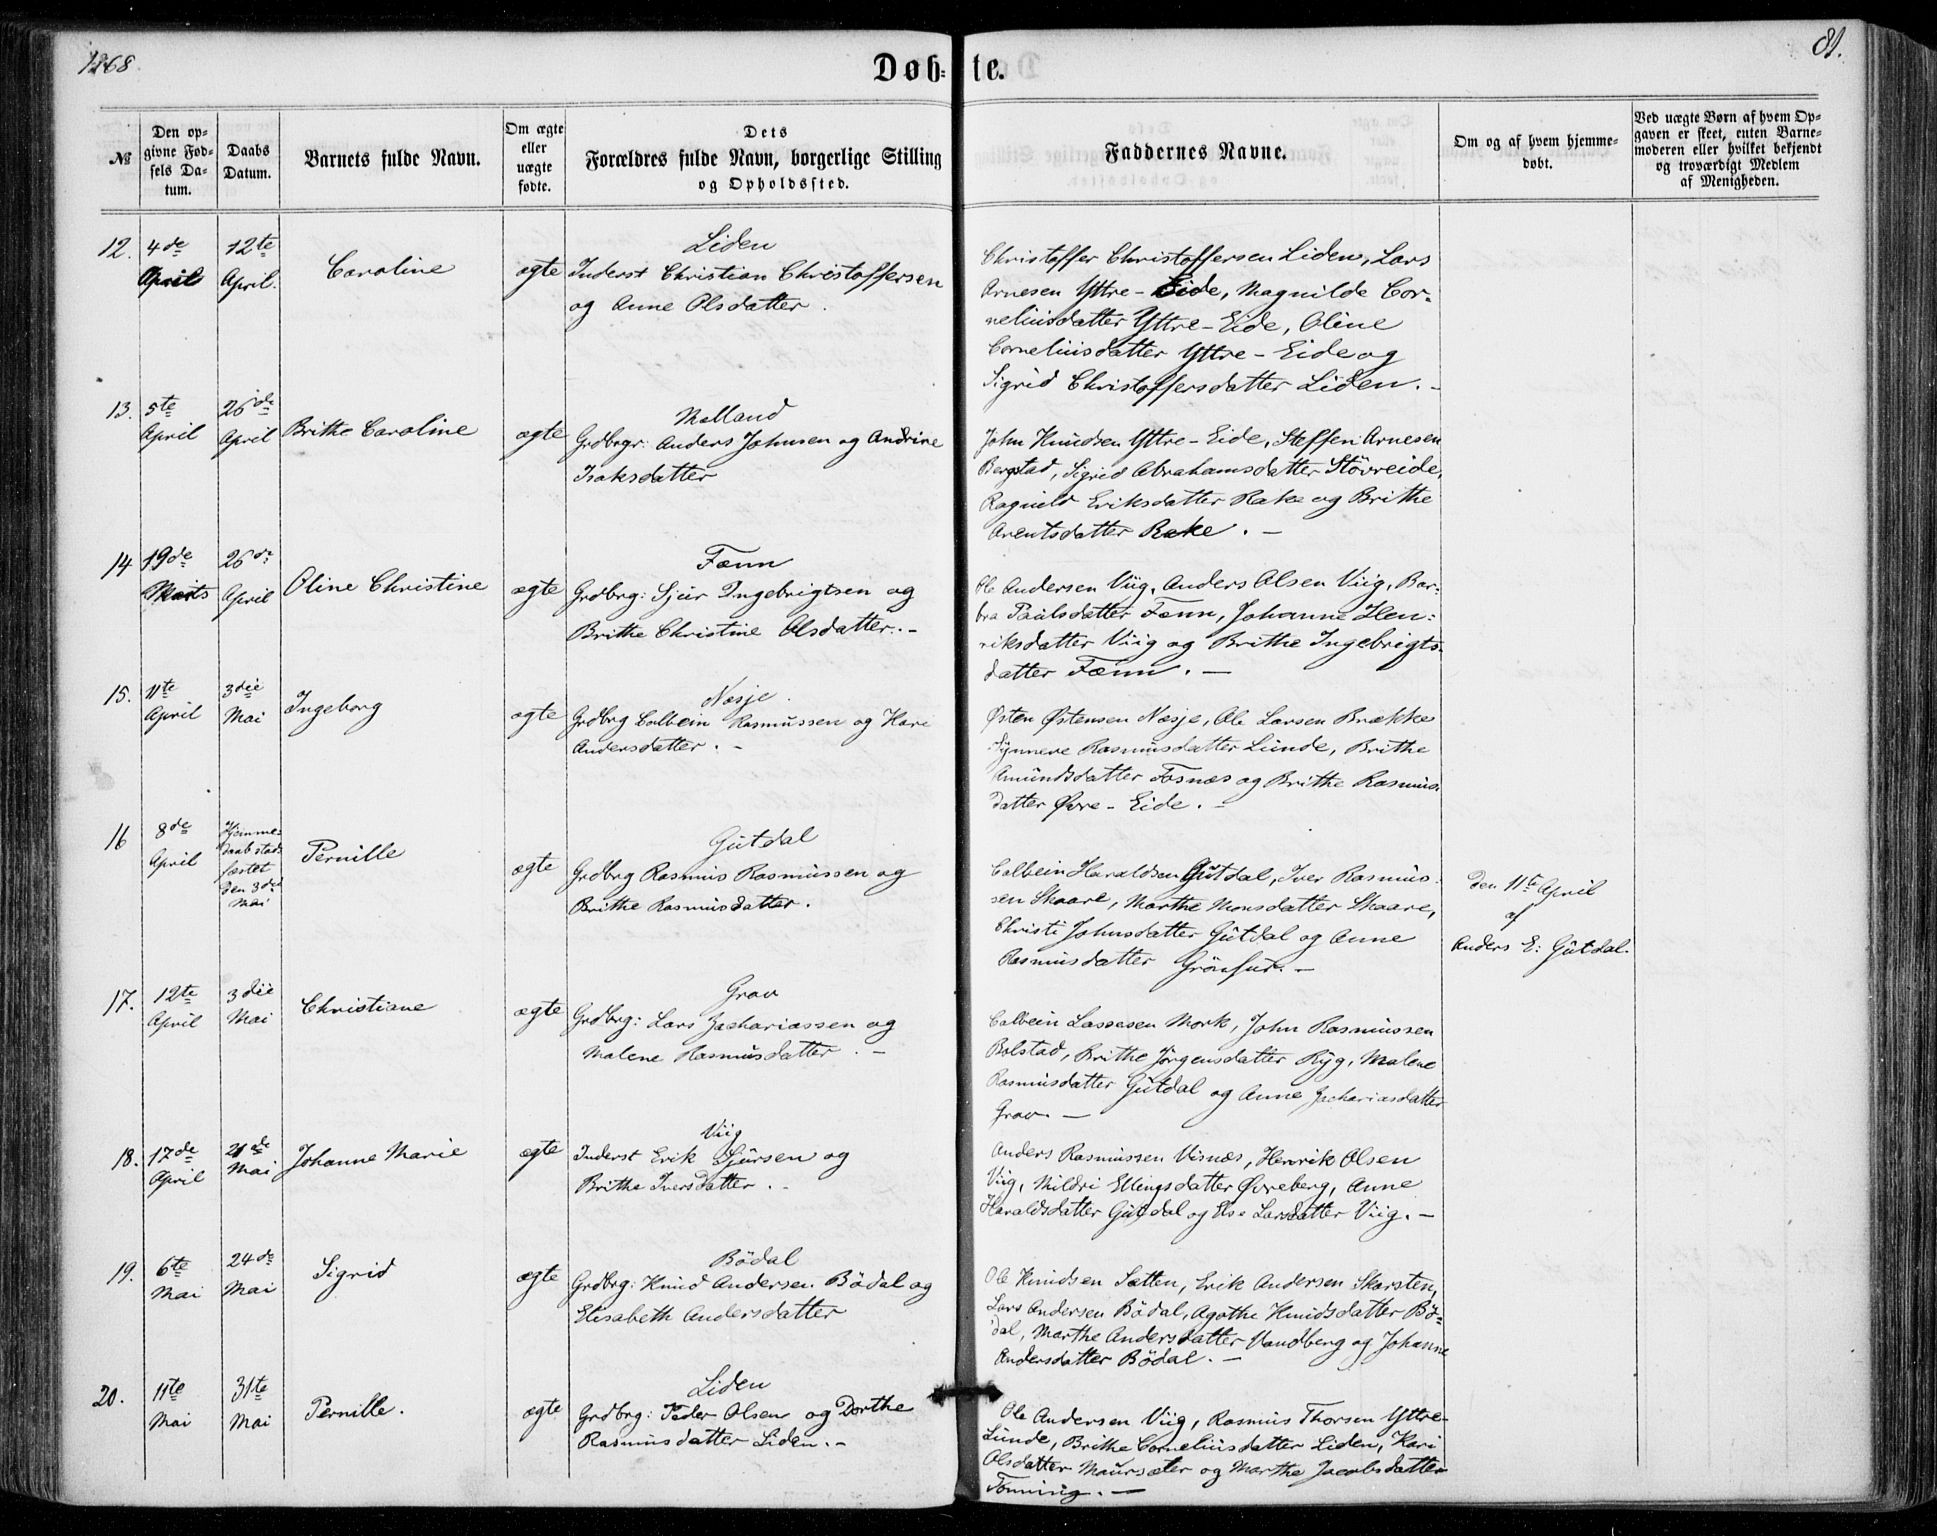 1868
Døbte.
81.
№
Den opgivne Fødsels Datum.
Daabs Datum.
Barnets fulde Navn.
Om ægte eller uægte fødte.
Dets Forældres fulde Navn, borgerlige Stilling og Opholdssted.
Faddernes Navne.
Om og af hvem hjemmedøbt.
Ved uægte Børn af hvem Opgaven er skeet, enten Barnemoderen eller hvilket bekjendt og troværdigt Medlem af Menigheden.
12. 4de April
12te April.
Caroline
ægte
Liden
Inderst Christian Christoffersen
og Anne Olsdatter.
Christoffer Christoffersen Liden, Lars
Arnesen Yttre-Eide, Magnilde Cor-
neliusdatter Yttre-Eide, Oline
Corneliusdatter Yttre-Eide og
Sigrid Christoffersdatter Liden. -
13. 5te April
26de April
Brithe Caroline
ægte
Melland
Grdbrgr: Anders Johnsen og Andrine
Isaksdatter
John Knudsen Yttre-Eide, Steffen Arnesen
Bergstad, Sigrid Abrahamsdatter Stövreide,
Ragnild Eriksdatter Rake og Brithe
Arentsdatter Rake. -
14 19de Marts
26de April
Oline Christine
ægte
Fænn
Grdbrg: Sjur Ingebrigtsen og
Brithe Christine Olsdatter. -
Ole Andersen Viig, Anders Olsen Viig, Bar-
bra Paulsdatter Fænn, Johanne Hen-
riksdatter Viig og Brithe Ingebrigts-
datter Fænn. -
15. 11te April
3die Mai
Ingeborg
ægte
Nesje.
Grdbrg Colbein Rasmussen og Kari
Andersdatter. -
Østen Østensen Nesje, Ole Larsen Brække
Synneve Rasmusdatter Lunde, Brithe
Amundsdatter Fosnæs og Brithe Rasmus-
datter Øvre-Eide. -
16 8de April
Hjemme-
daab stad-
fæstet
den 3die
Mai
Pernille
ægte
Gutdal
Grdbrg Rasmus Rasmussen og
Brithe Rasmusdatter.
Colbein Haraldsen Gutdal, Iver Rasmus-
sen Skaare, Marthe Monsdatter Skaare,
Christi Johnsdatter Gutdal og Anne
Rasmusdatter Grönfur. -
den 11te April
af
Anders E: Gutdal.
17. 12te April
3die Mai
Christiane
ægte
Grov
Grdbrg: Lars Zachariassen og
Malene Rasmusdatter. -
Colbein Lassesen Mork, John Rasmussen
Bolstad, Brithe Jörgensdatter Ryg, Malene
Rasmusdatter Gutdal og Anne Zachariasdatter
Grov. -
18. 17de April
21de Mai
Johanne Marie
ægte
Viig
Inderst Erik Sjursen og
Brithe Iversdatter. -
Anders Rasmussen Visnæs, Henrik Olsen
Viig, Mildri Ellingsdatter Øvreberg, Anne
Haraldsdatter Gutdal og Else Larsdatter Viig. -
19. 6te Mai
24de Mai
Sigrid
ægte
Bödal
Grdbrg: Knud Andersen Bödal og
Elisabeth Andersdatter
Ole Knudsen Sætten, Erik Andersen Skarsten,
Lars Andersen Bödal, Agathe Knudsdatter Bö-
dal, Marthe Andersdatter Vandberg og Johanne
Andersdatter Bödal. -
20. 11te Mai
31te Mai
Pernille.
ægte
Liden
Grdbrg: Peder Olsen og Dorthe
Rasmusdatter Liden. -
Ole Andersen Viig, Rasmus Thorsen Yttre-
Lunde, Brithe Corneliusdatter Liden, Kari
Olsdatter Maursæter og Marthe Jacobsdatter
Tonning. -